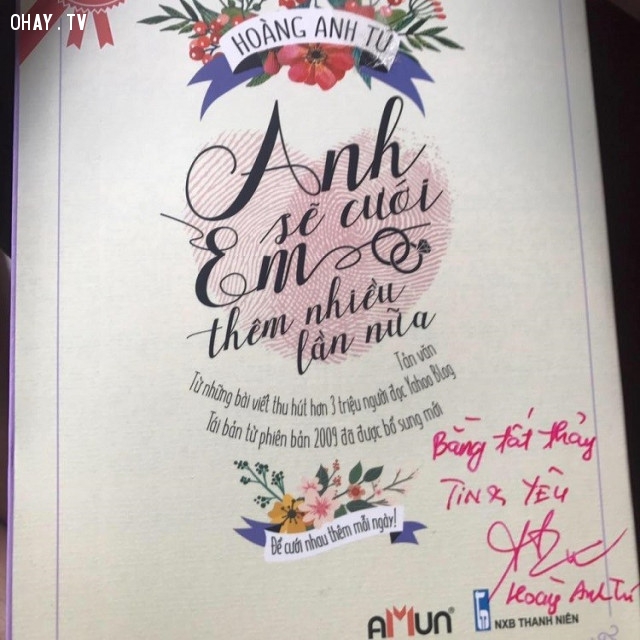 OHAY.TV
HOÀNG ANH TÚ
Anh
sẽ cưới
Em
thêm nhiều
lần nữa
Tản văn
Từ những bài viết thu hút hơn 3 triệu người đọc Yahoo Blog
Tái bản từ phiên bản 2009 đã được bổ sung mới
Bằng tất thảy
TIN & YÊU
Hoàng Anh Tú
Để cưới nhau thêm mỗi ngày!
AMUN
NXB THANH NIÊN